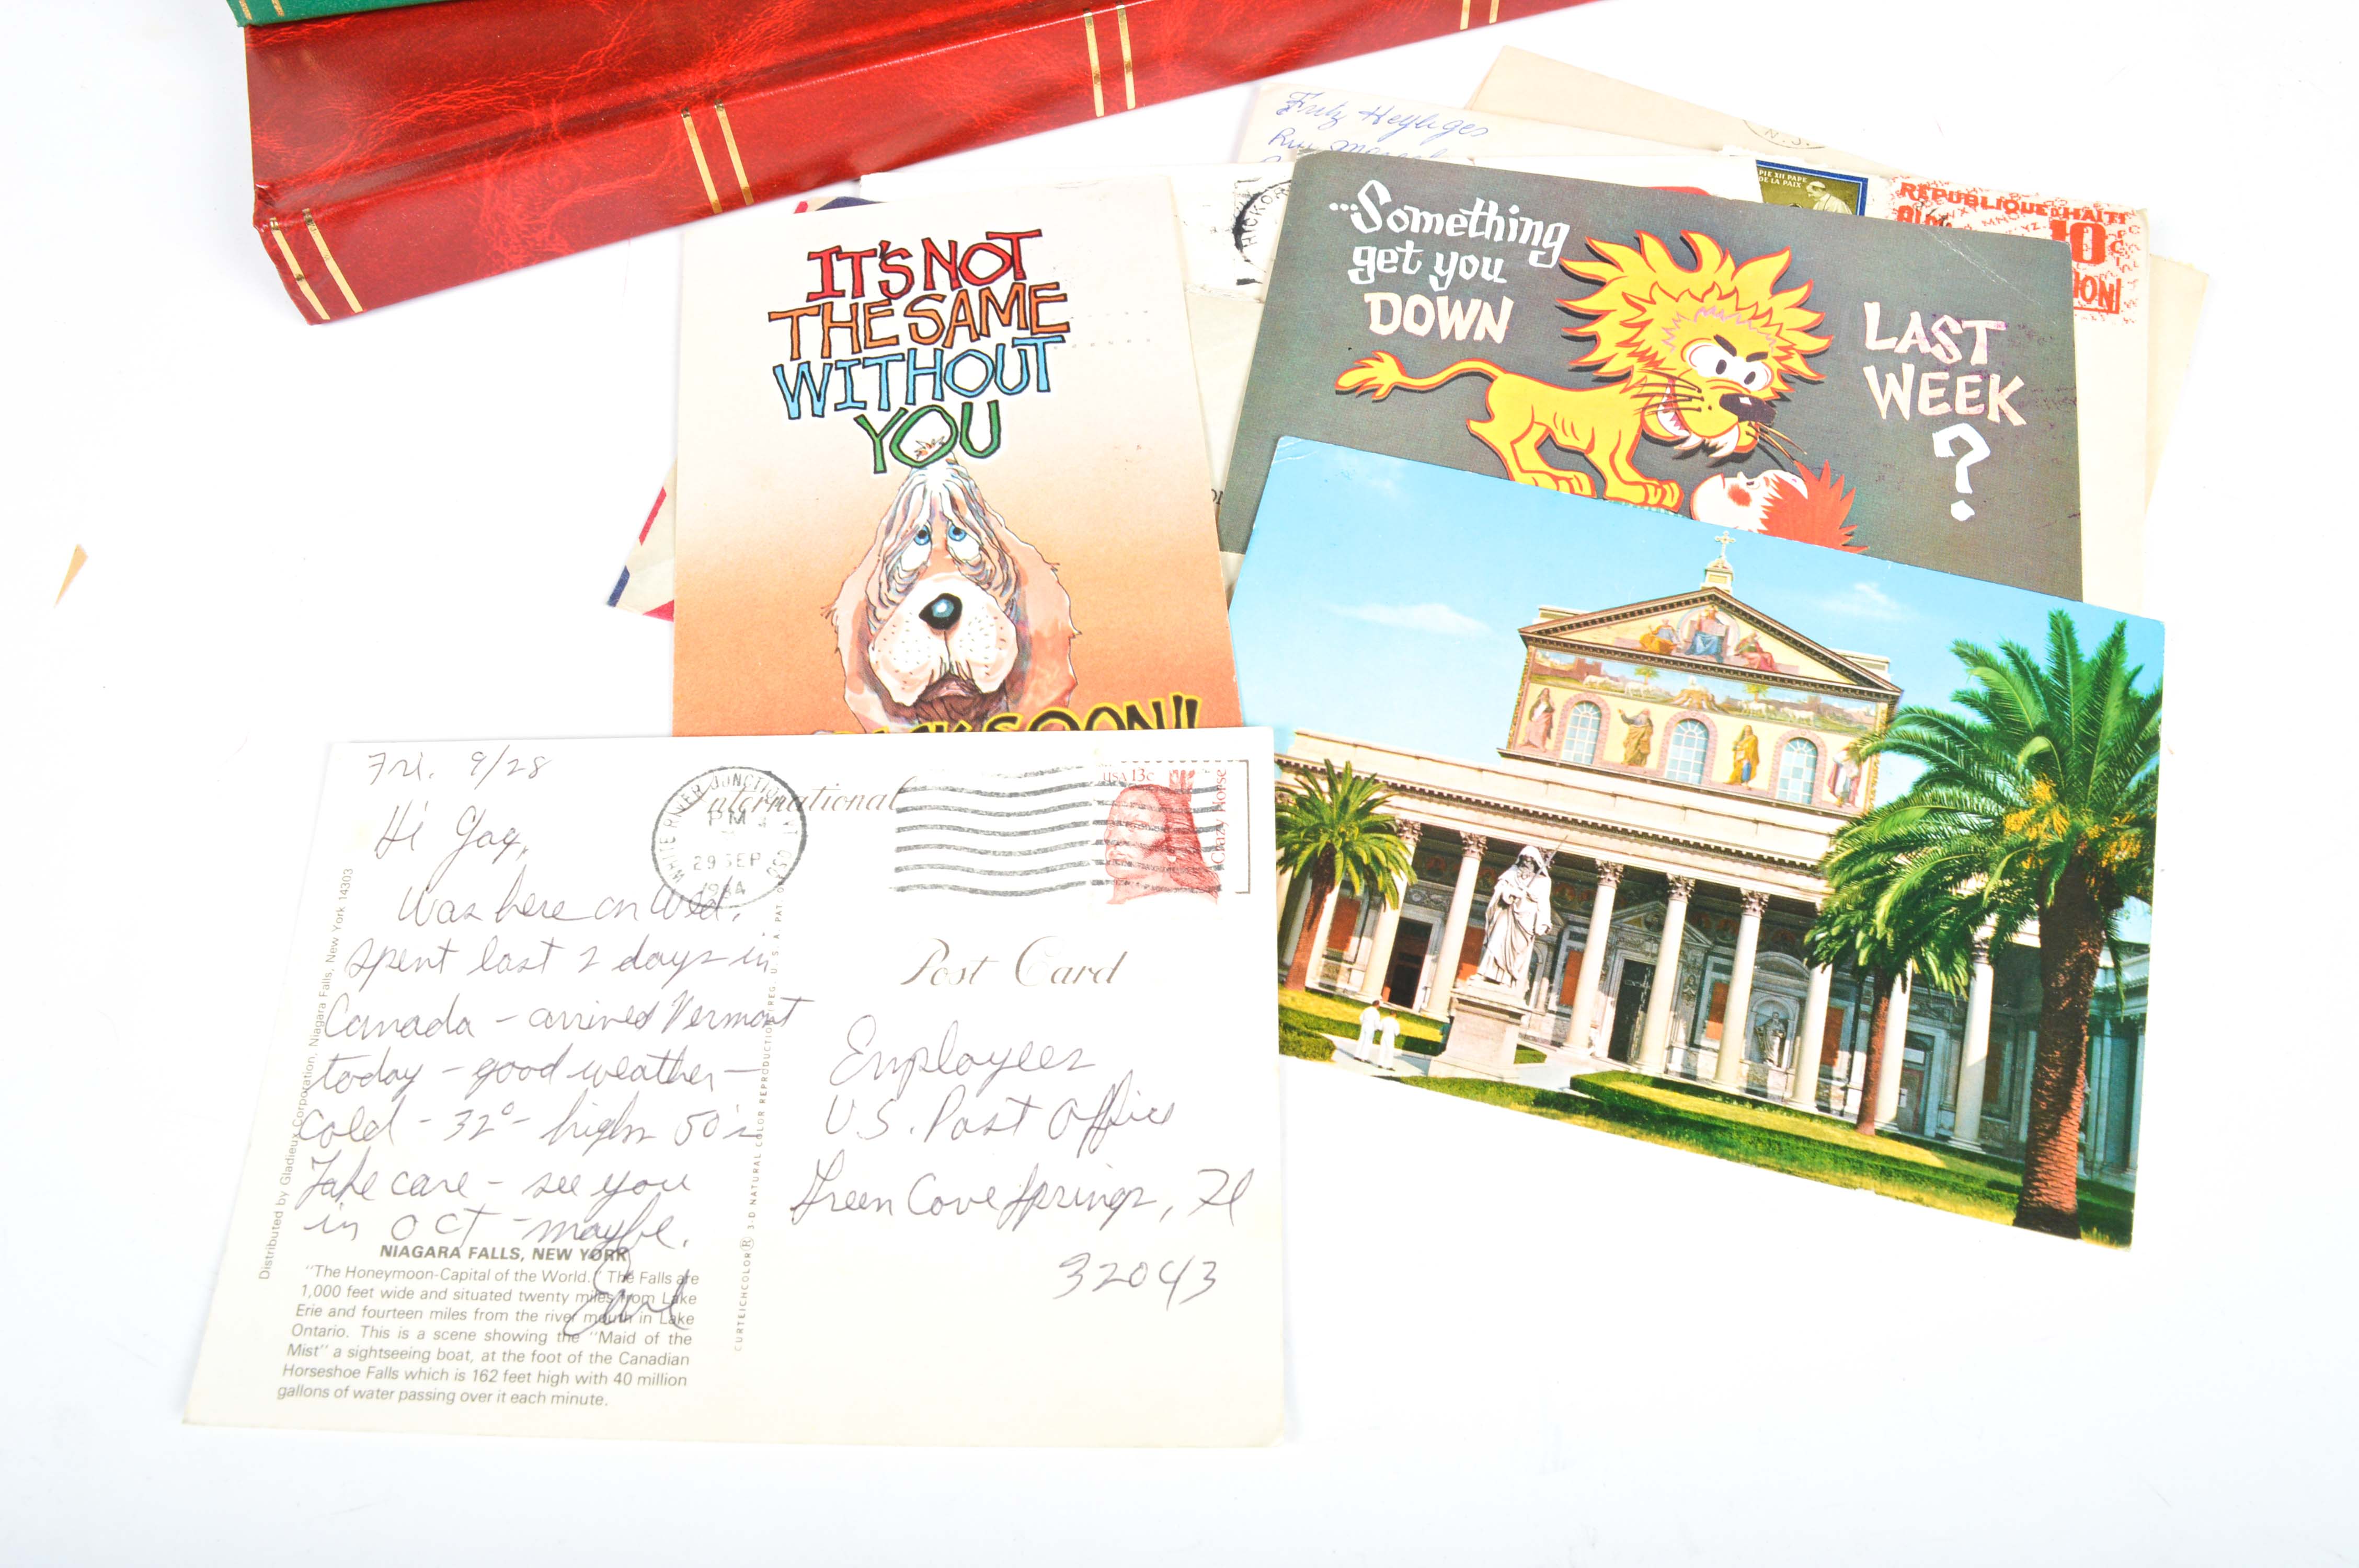 Fritz Heyliges
N.J.
HICKOR
PIE XII PAPE
DE LA PAIX
REPUBLIQUE D'HAITI
10c
ION
IT'S NOT
THE SAME
WITHOUT
YOU
SOON!!
...Something
get you
DOWN
LAST
WEEK
?
Fri. 9/28
Hi Yaq,
Was here on Wed.
spent last 2 days in
Canada - arrived Vermont
today - good weather -
cold - 32° - highs 50s
Take care - see you
in OCT - maybe.
Earl
NIAGARA FALLS, NEW YORK
"The Honeymoon-Capital of the World." The Falls are
1,000 feet wide and situated twenty miles from Lake
Erie and fourteen miles from the river mouth in Lake
Ontario. This is a scene showing the "Maid of the
Mist" a sightseeing boat, at the foot of the Canadian
Horseshoe Falls which is 162 feet high with 40 million
gallons of water passing over it each minute.
Distributed by Gladieux Corporation, Niagara Falls, New York 14303
CURTEICHCOLOR® 3-D NATURAL COLOR REPRODUCTION (REG. U.S.A. PAT. OFF.)
International
WHITE RIVER JUNCTION VT
PM
29 SEP
1984
USA 13c
Crazy Horse
Post Card
Employees
U.S. Post Office
Green Cove Springs, Fl
32043